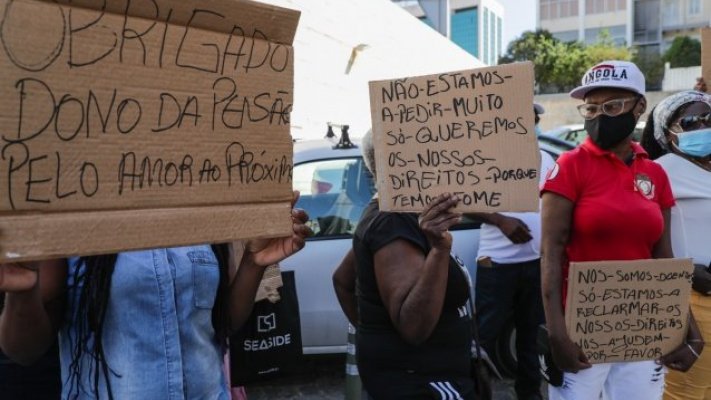 OBRIGADO
DONO DA PENSÃO
PELO AMOR AO PRÓXIM
NÃO-ESTAMOS-
-A-PEDIR-MUITO
SÓ-QUEREMOS
OS-NOSSOS-
DIREITOS-PORQUE
TEMOS-FOME
ANGOLA
NOS-SOMOS-DOEN
SÓ-ESTAMOS-A
RECLARMAR-OS
NOSSOS-DIREITOS
NOS-AJUDEM
-POR-FAVOR
SEASIDE